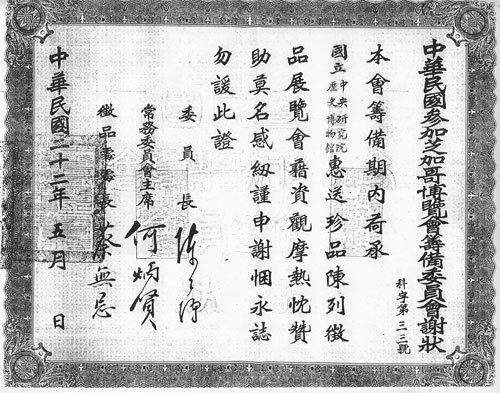 中華民國參加芝加哥博覽會籌備委員會謝狀
科字第三三號
本會籌備期內荷承
國立中央研究院歷史博物館惠送珍品陳列徵
品展覽會藉資觀摩熱忱贊
助莫名感紉謹申謝悃永誌
勿諼此證
委員長 陳公博
常務委員會主席 何炳賢
徵品處處長 蔡無忌
中華民國二十二年五月 日